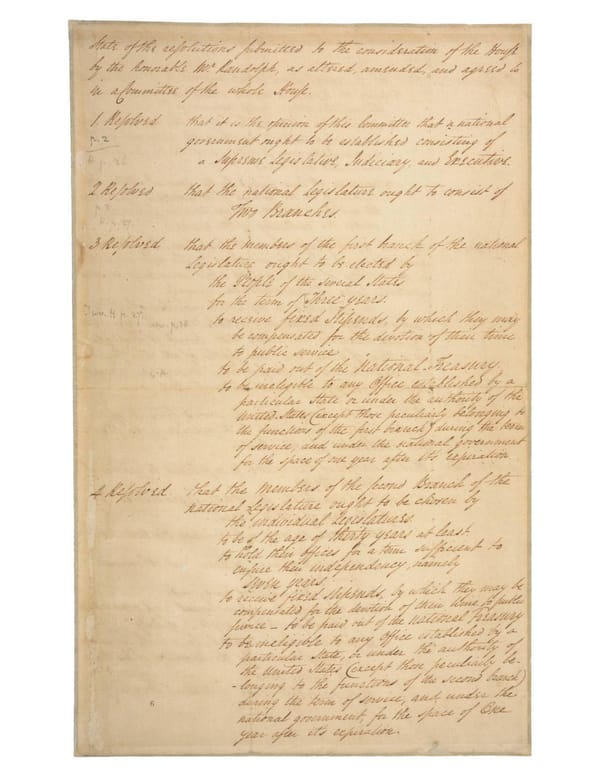 State of the resolutions submitted to the consideration of the House
by the honorable Mr. Randolph, as altered, amended, and agreed to
in a Committee of the whole House.
1 Resolved that it is the opinion of this Committee that a national
p. 2
government ought to be established consisting of
a Supreme Legislative, Judiciary, and Executive.
2 Resolved that the national Legislature ought to consist of
Two Branches.
3 Resolved that the members of the first branch of the national
Legislature ought to be elected by
the People of the several States
for the term of Three years.
to receive fixed stipends, by which they may
be compensated for the devotion of their time
to public service
to be paid out of the National-Treasury.
to be ineligible to any Office established by a
particular State or under the authority of the
United States (except those peculiarly belonging to
the functions of the first branch) during the term
of service, and under the national government
for the space of one year after its expiration
4 Resolved that the Members of the second Branch of the
national Legislature ought to be chosen by
the individual Legislatures.
to be of the age of thirty years at least.
to hold their offices for a term sufficient to
ensure their independency, namely
seven years.
to receive fixed stipends, by which they may be
compensated for the devotion of their time to public
service - to be paid out of the National Treasury
to be ineligible to any Office established by a
particular State, or under the authority of
the United States (except those peculiarly be-
-longing to the functions of the second branch)
during the term of service, and under the
national government, for the space of One
year after its expiration.